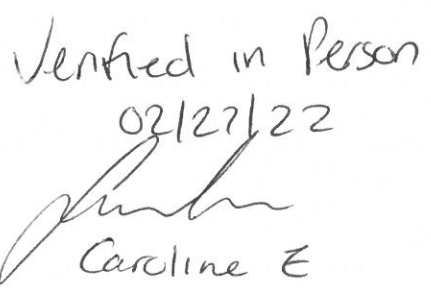 Verified in Person
02/27/22
Caroline E